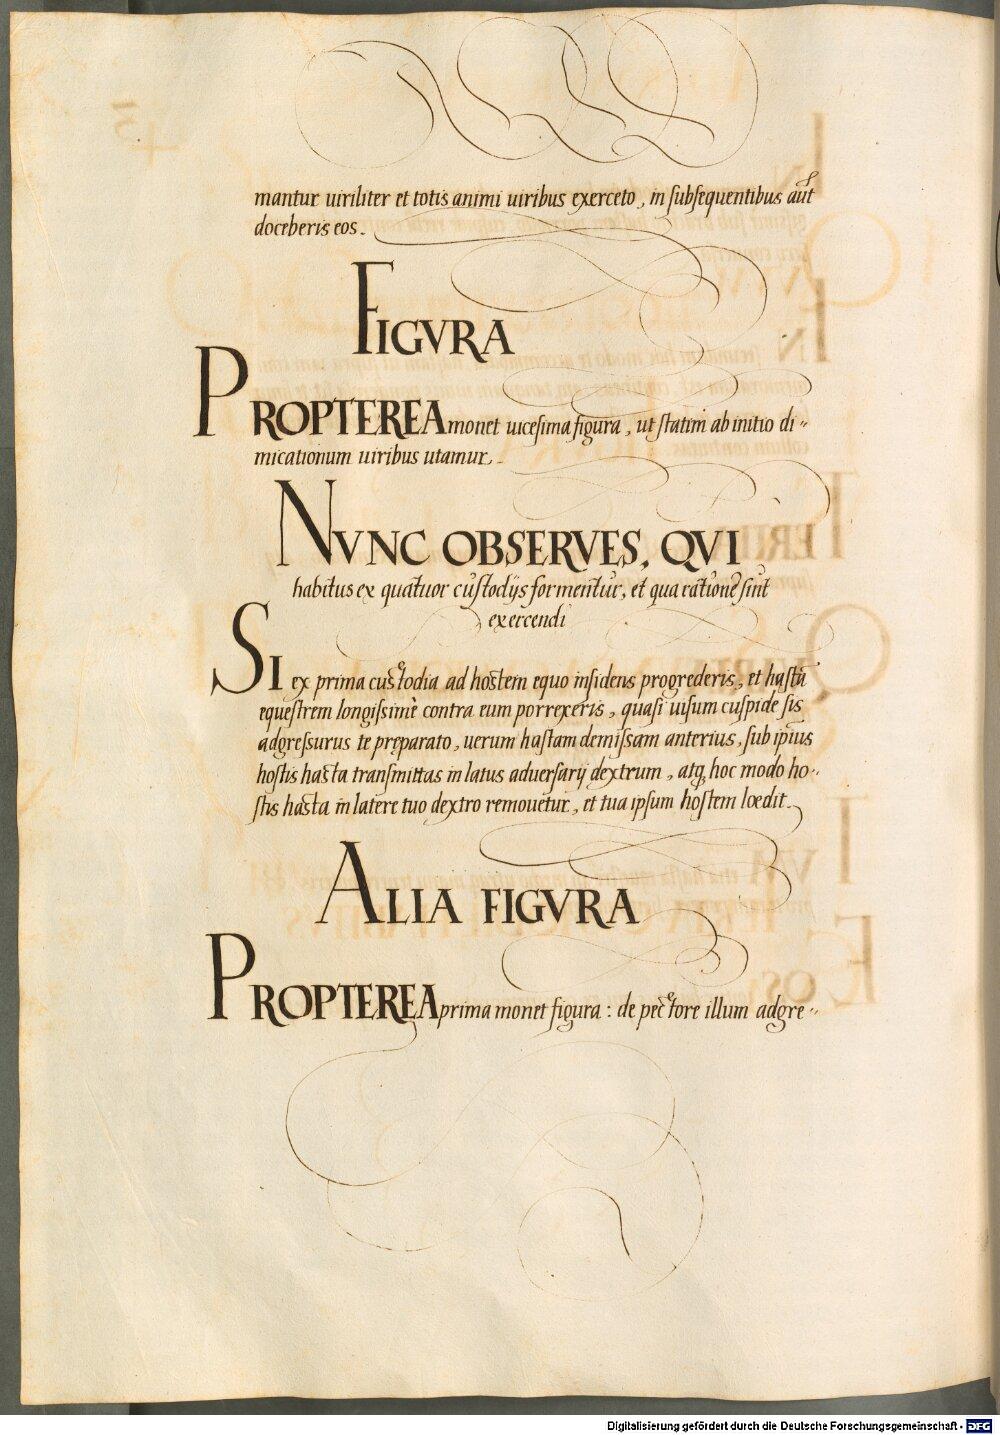 mantur uiriliter et totis animi uiribus exerceto, in subsequentibus aut
doceberis eos.
FIGVRA
PROPTEREA monet uicesima figura, ut statim ab initio di=
micationum uiribus utamur.
NVNC OBSERVES, QVI
habitus ex quatuor custodijs formentur, et qua ratione sint
exercendi
SI ex prima custodia ad hostem equo insidens progrederis, et hastã
equestrem longissime contra eum porrexeris, quasi uisum cuspide sis
adgressurus te pręparato, uerum hastam demissam anterius, sub ipsius
hostis hasta transmittas in latus aduersarij dextrum, atq; hoc modo ho=
stis hasta in latere tuo dextro remouetur, et tua ipsum hostem loedit.
ALIA FIGVRA
PROPTEREA prima monet figura: de pectore illum adgre=
Digitalisierung gefördert durch die Deutsche Forschungsgemeinschaft - DFG